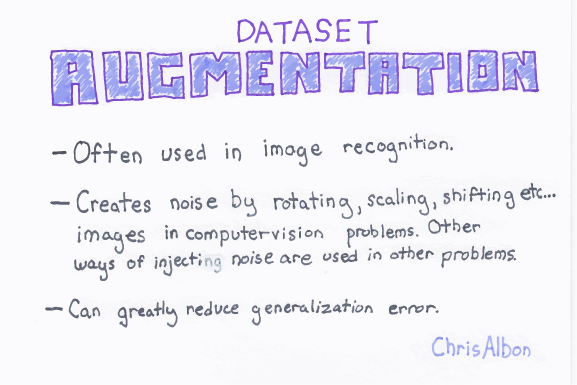 DATASET
AUGMENTATION
- Often used in image recognition.
- Creates noise by rotating, scaling, shifting etc...
images in computer vision problems. Other
ways of injecting noise are used in other problems.
- Can greatly reduce generalization error.
Chris Albon